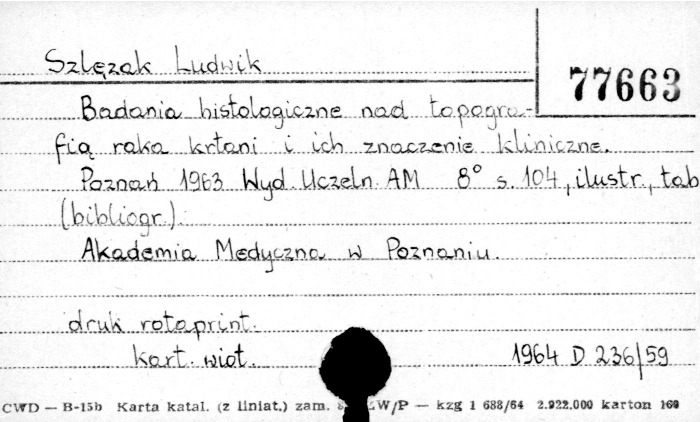 Szlęzak Ludwik
77663
Badania histologiczne nad topogra-
fią raka krtani i ich znaczenie kliniczne.
Poznań 1963 Wyd. Uczeln. AM 8° s. 104, ilustr., tab
(bibliogr.).
Akademia Medyczna w Poznaniu.
druk rotaprint.
kart. wiot.
1964 D 236/59
CWD — B-15b Karta katal. (z liniat.) zam. W/P — kzg 1 688/64 2.922.000 karton 160